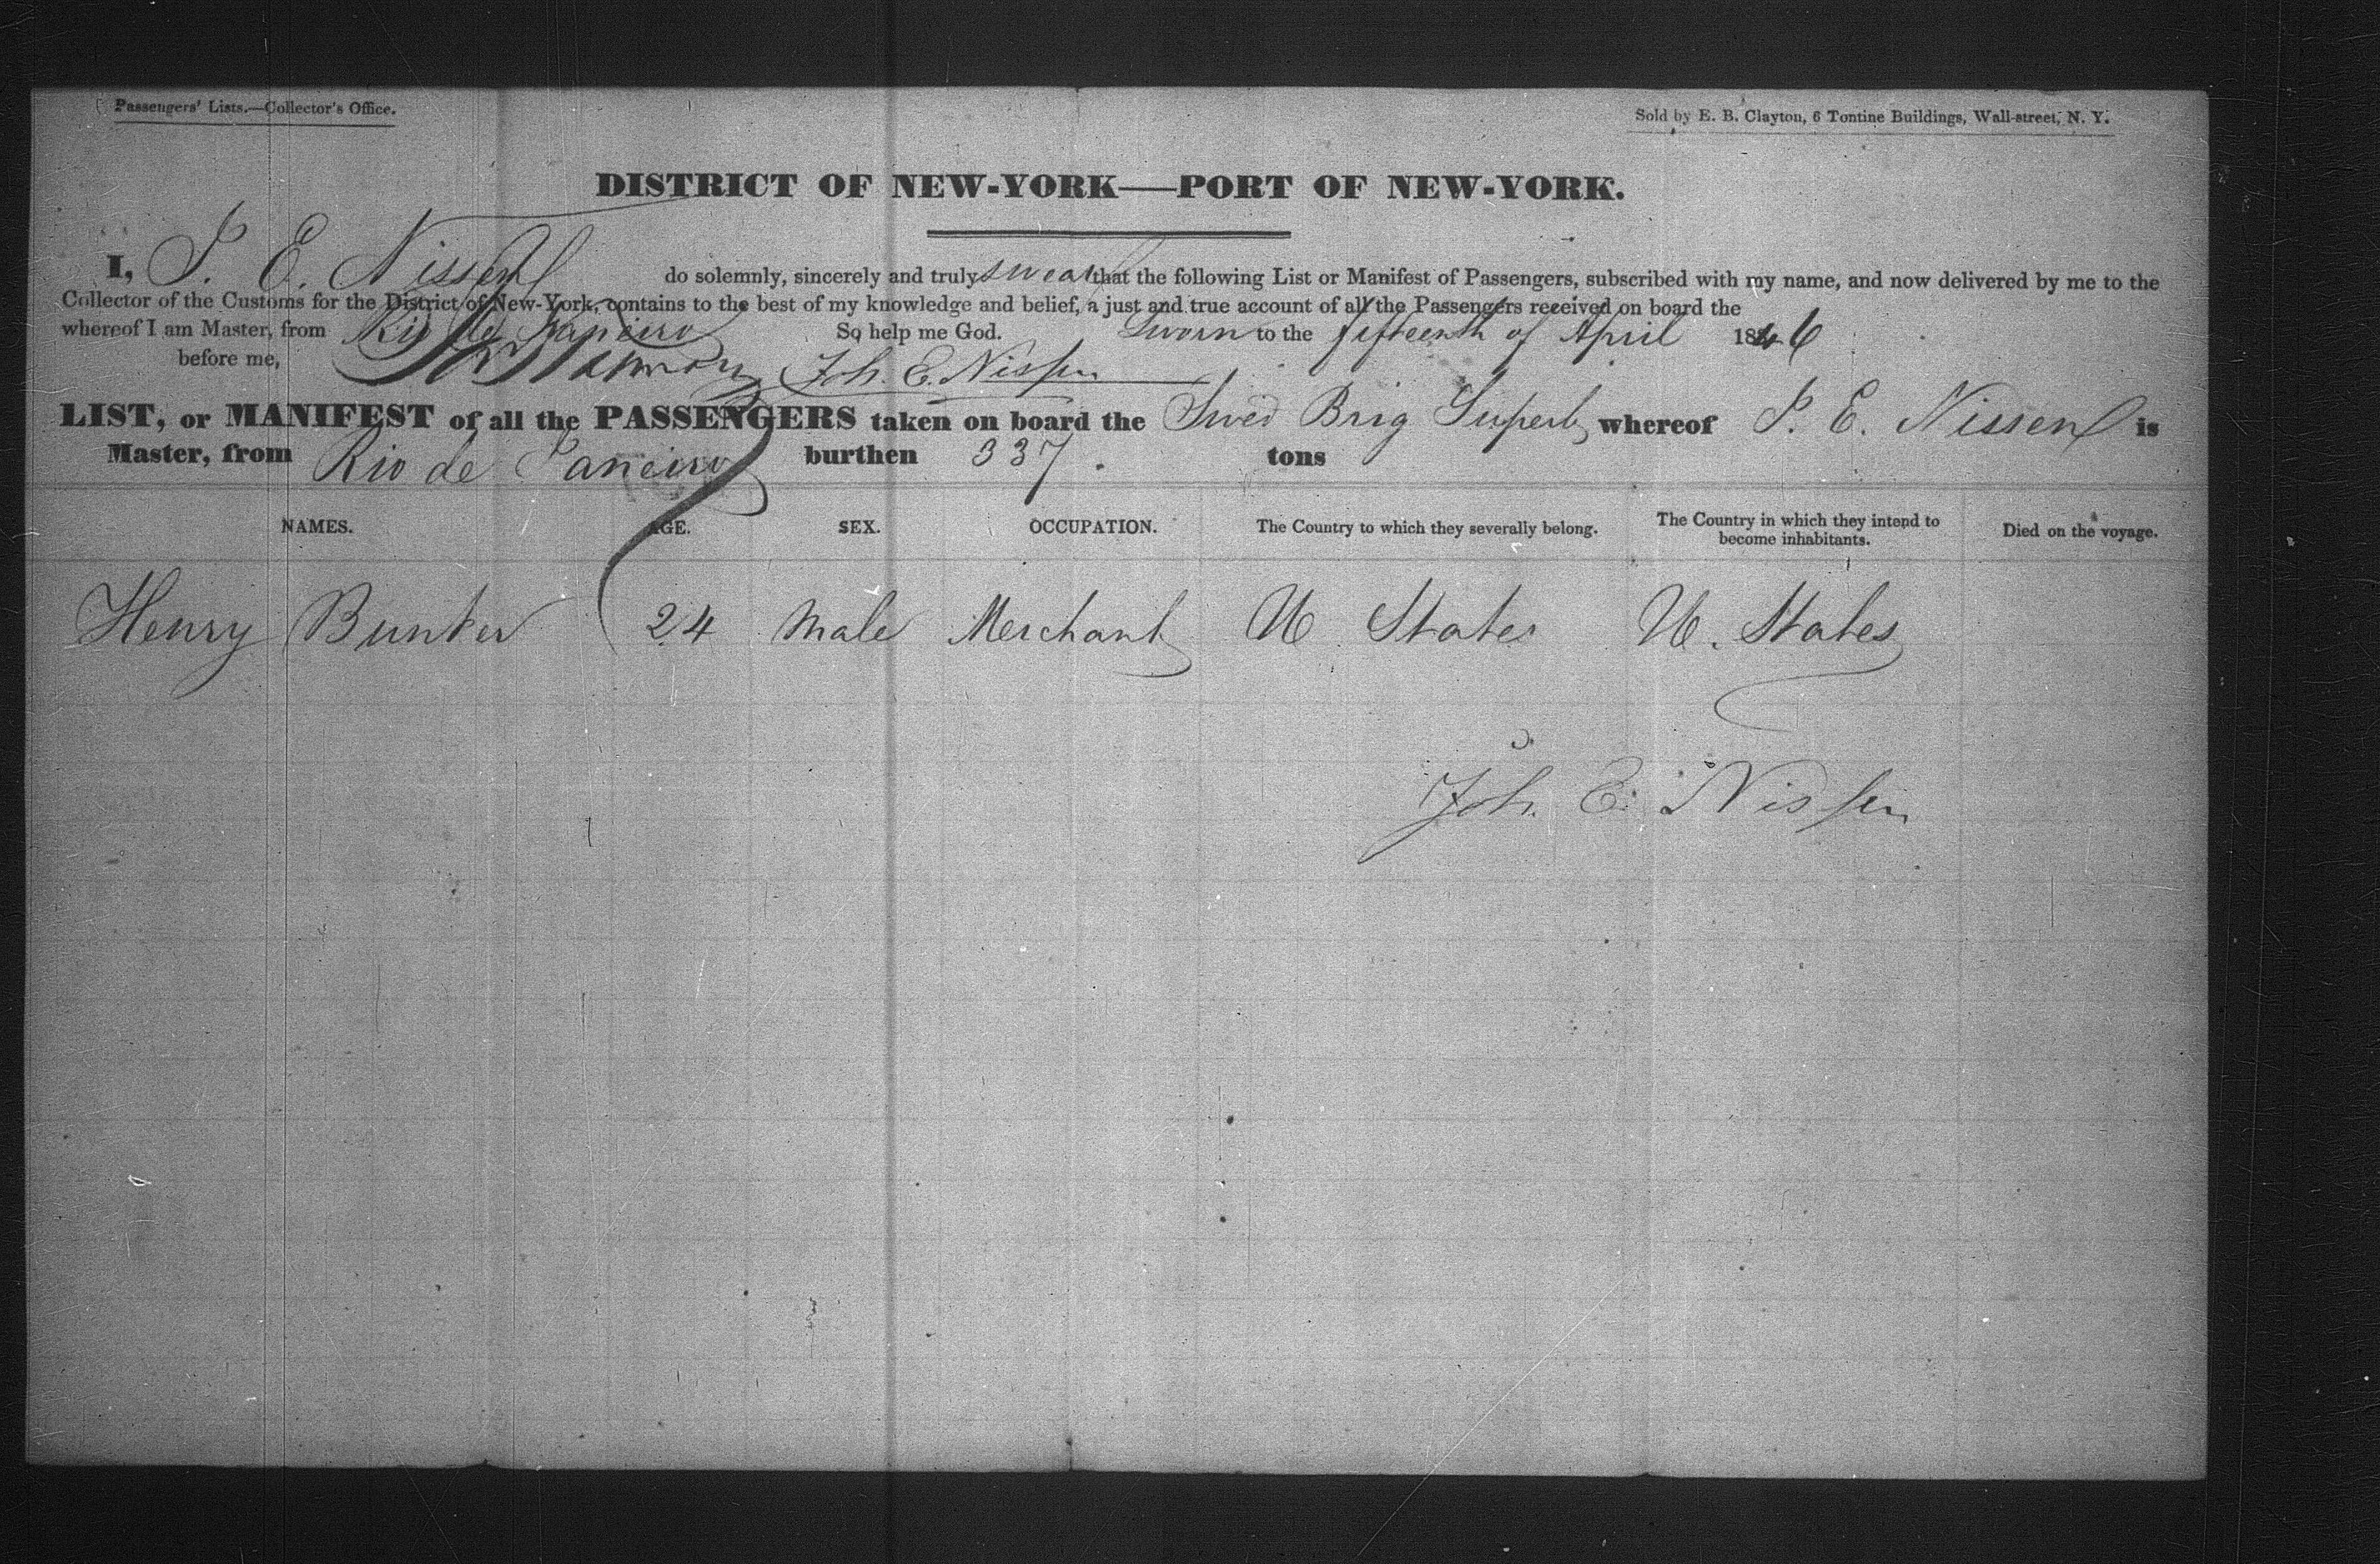 Passengers' Lists.—Collector's Office.
Sold by E. B. Clayton, 6 Tontine Buildings, Wall-street, N. Y.
DISTRICT OF NEW-YORK—PORT OF NEW-YORK.
I, J. E. Nissen do solemnly, sincerely and truly swear that the following List or Manifest of Passengers, subscribed with my name, and now delivered by me to the
Collector of the Customs for the District of New-York, contains to the best of my knowledge and belief, a just and true account of all the Passengers received on board the
whereof I am Master, from Rio de Janeiro So help me God. Sworn to the fifteenth of April 1846
before me, Joh. E. Nissen
LIST, or MANIFEST of all the PASSENGERS taken on board the Swed Brig Superb whereof J. E. Nissen is
Master, from Rio de Janeiro burthen 337. tons
NAMES. AGE. SEX. OCCUPATION. The Country to which they severally belong. The Country in which they intend to become inhabitants. Died on the voyage.
Henry Bunker 24 male Merchant U States U. States
Joh. E. Nissen